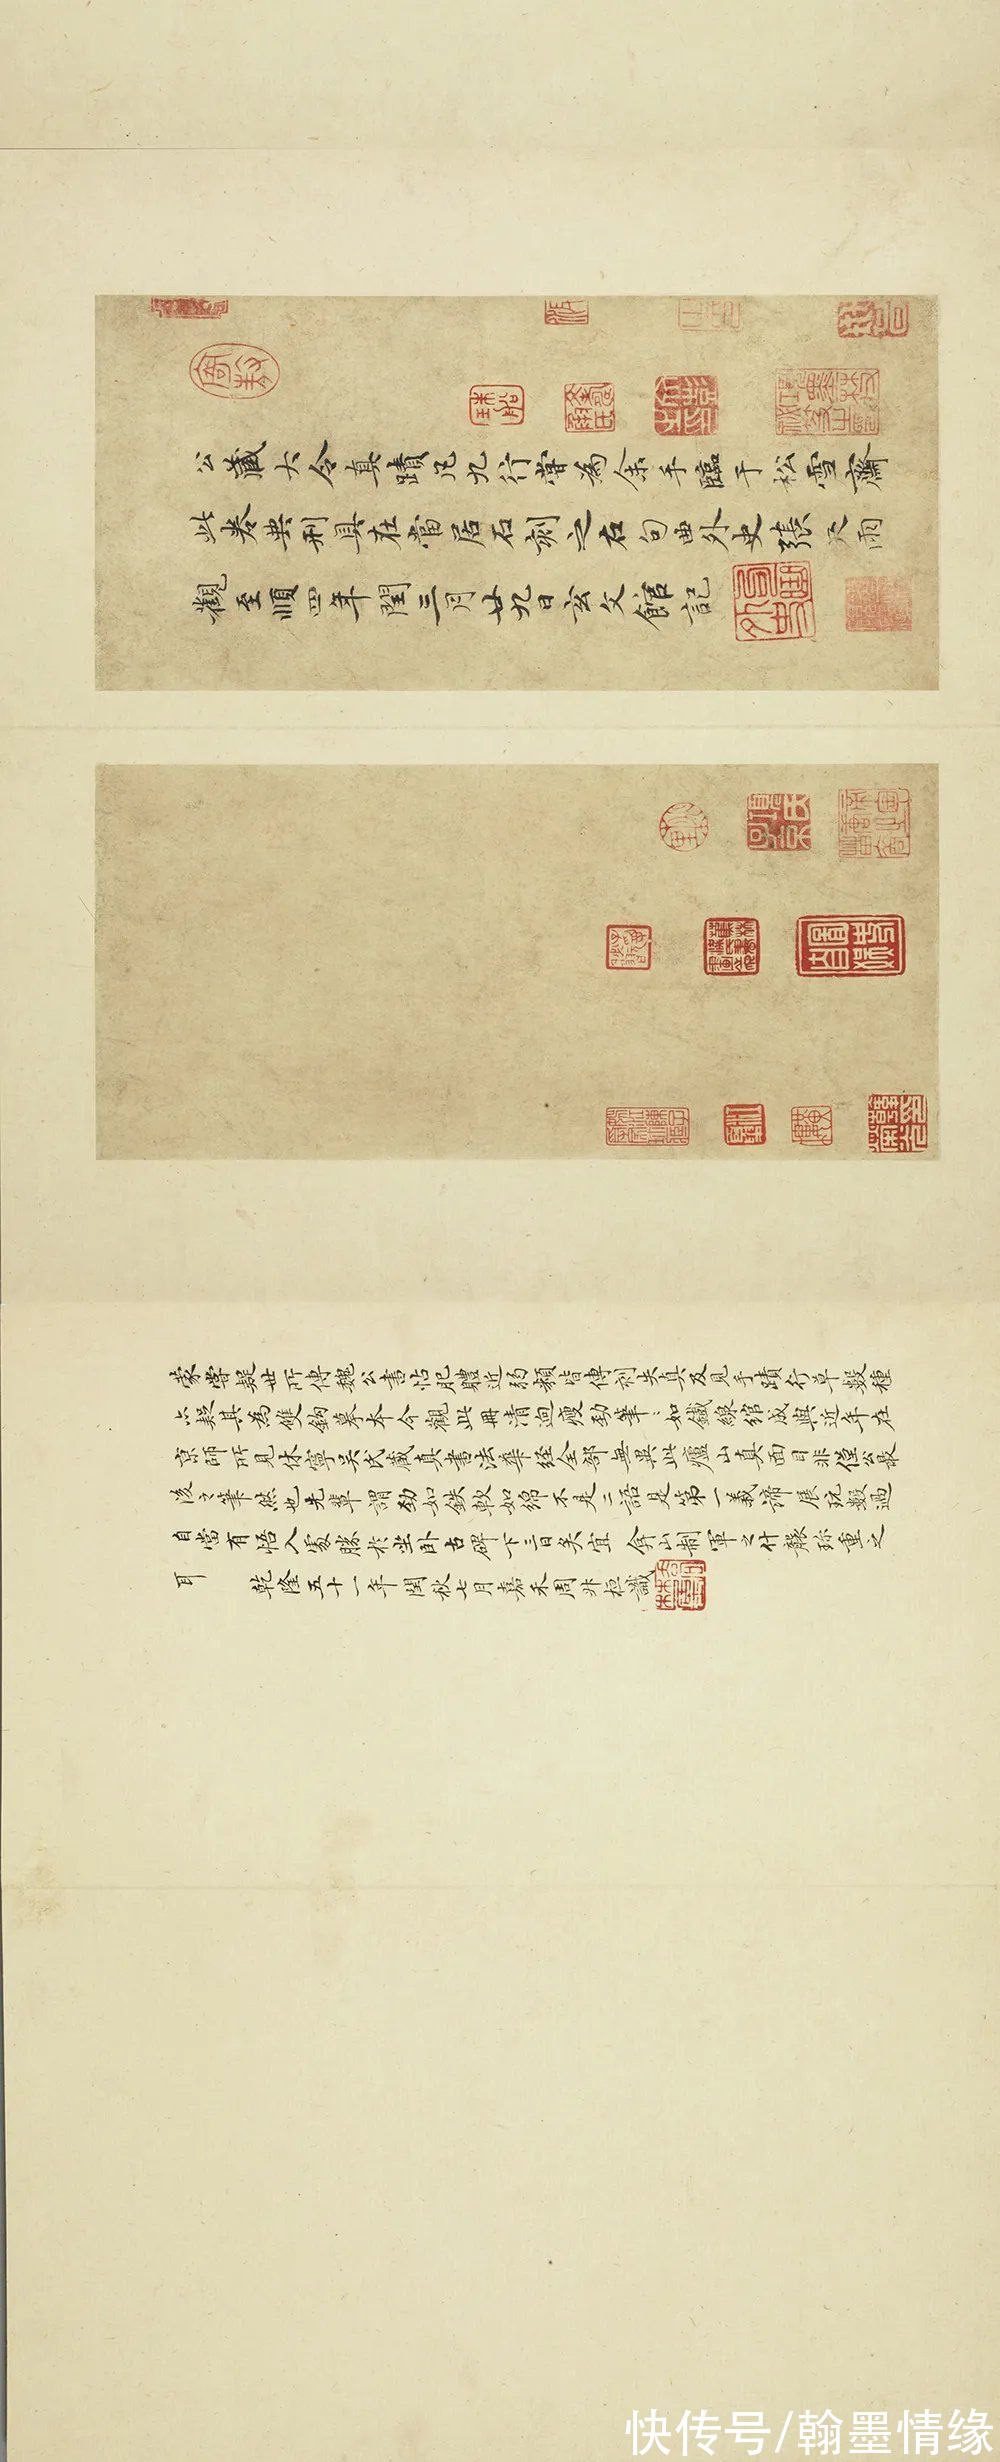 公藏大令真蹟凡九行嘗為余手臨于松雪齋
此卷典刑具在當居石刻之右句曲外史張天雨
觀至順四年閏三月廿九日玄文館記
蒙嘗疑世所傳魏公書帖肥體近弱類皆傳刻失真及見手蹟行草數種
亦疑其為雙鈎摹本今觀此冊清迥瘦勁筆筆如鐵線綰成與近年在
京師所見休寧吳氏藏真書法華經全部無異此廬山真面目非僅公最
後之筆然也先輩謂勁如鉄軟如綿不是二語是第一義諦展玩數過
自當有悟入處勝於坐卧古碑下三日矣宜弇山制軍之什襲珍重之
耳 乾隆五十一年閏秋七月嘉禾周升桓識
快传号/翰墨情缘